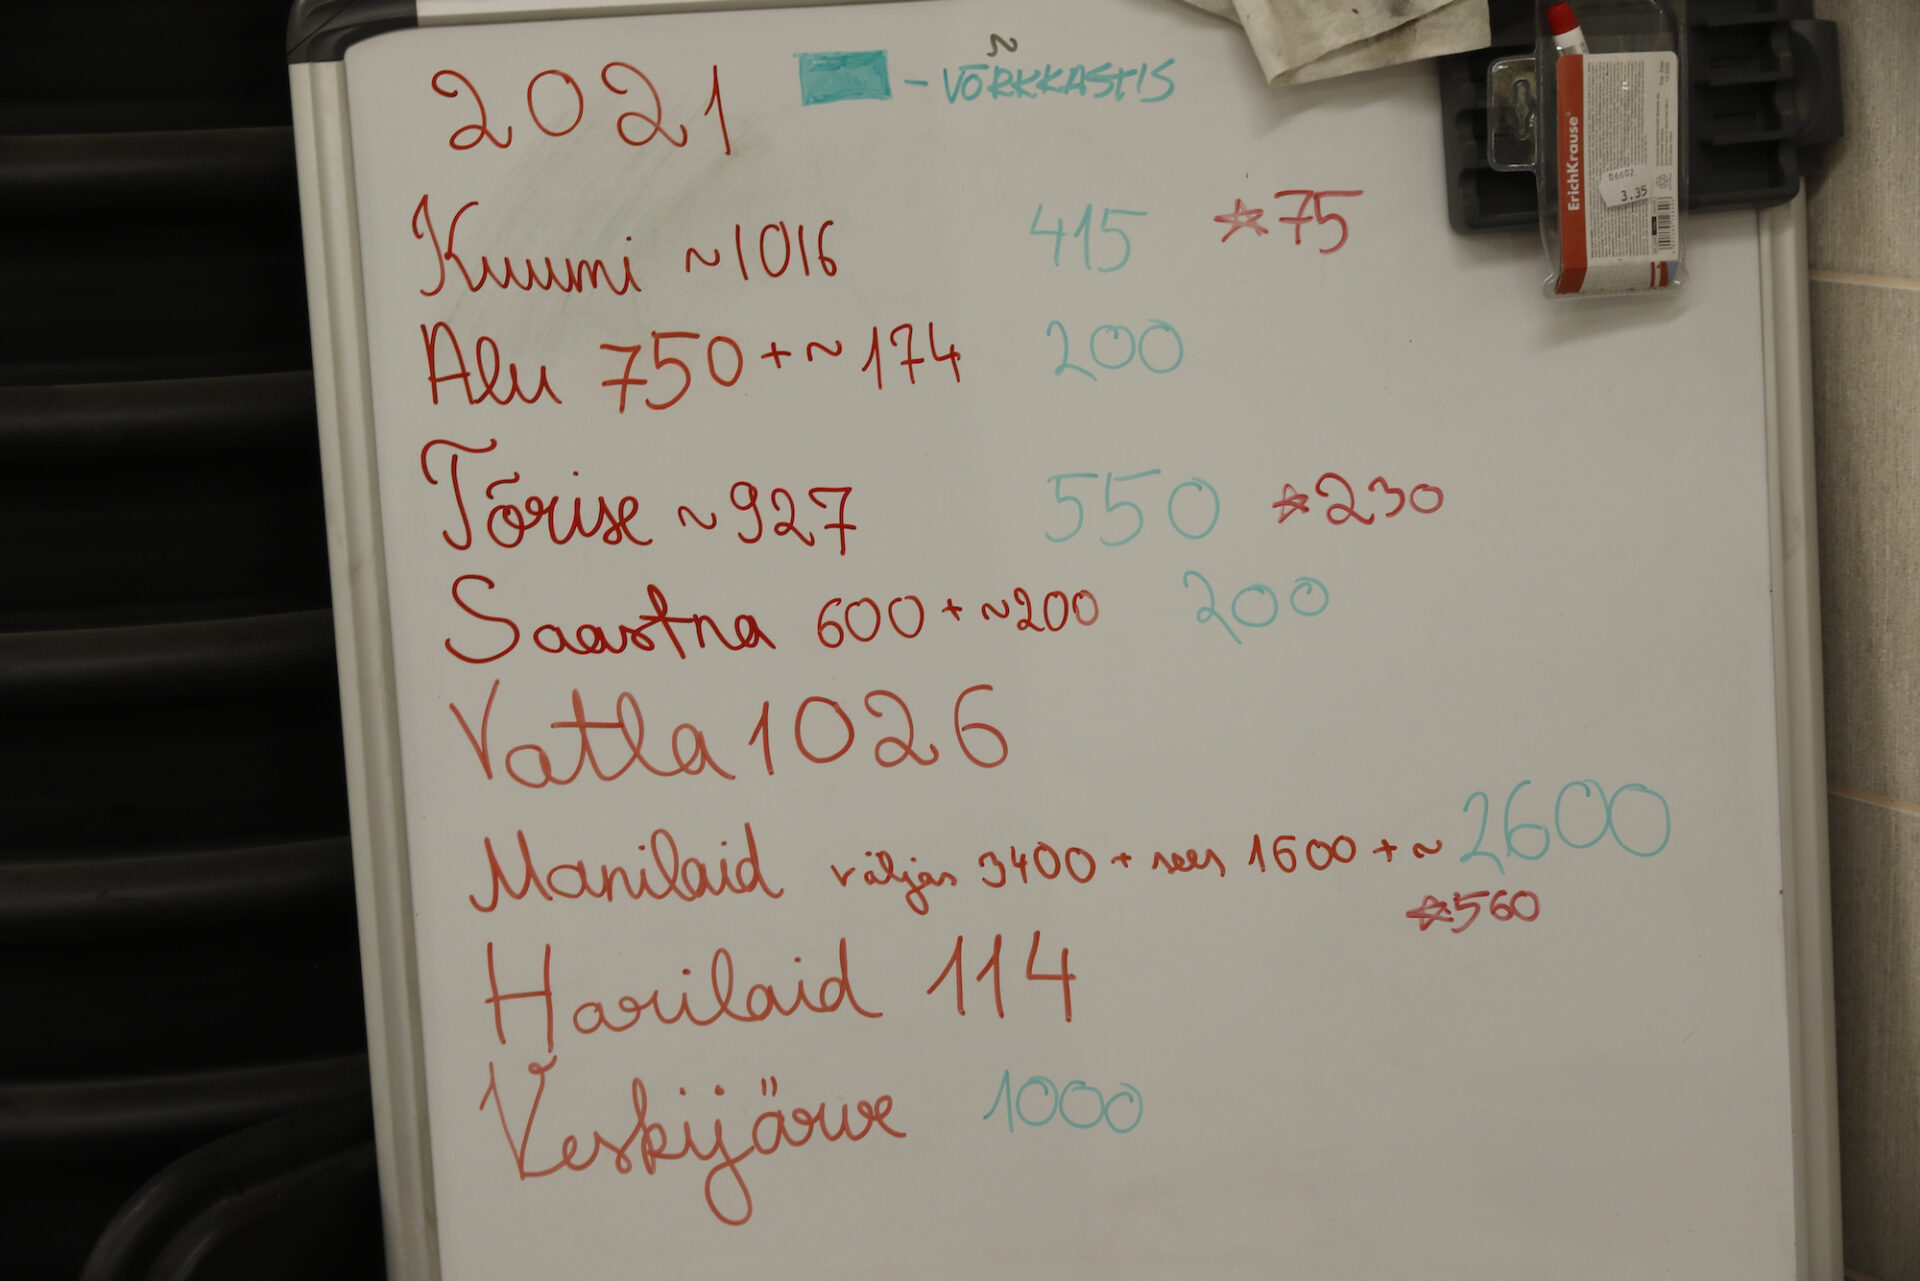 2021 - VÕRKKASTIS
Kuumi ~1016 415 ☆75
Alu 750 + ~174 200
Tõrise ~927 550 ☆230
Saastna 600 + ~200 200
Vatla 1026
Manilaid väljas 3400 + sees 1600 + ~ 2600
☆560
Harilaid 114
Veskijärve 1000
ErichKrause
06602
3.35